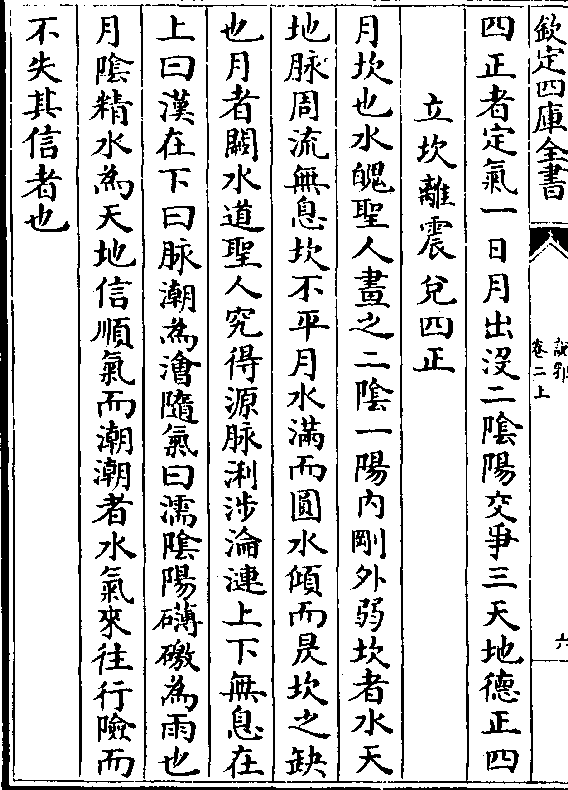 欽定四庫全書
卷二上
六
四正者定氣一日月出没二陰陽交爭三天地德正四
立坎離震兌四正
月坎也水魄聖人畫之二陰一陽内剛外弱坎者水天
地脉周流無息坎不平月水滿而圓水傾而昃坎之缺
也月者闕水道聖人究得源脉浰涉淪漣上下無息在
上曰漢在下曰脉潮為澮隨氣曰濡陰陽礴礉為雨也
月陰精水為天地信順氣而潮潮者水氣來往行險而
不失其信者也